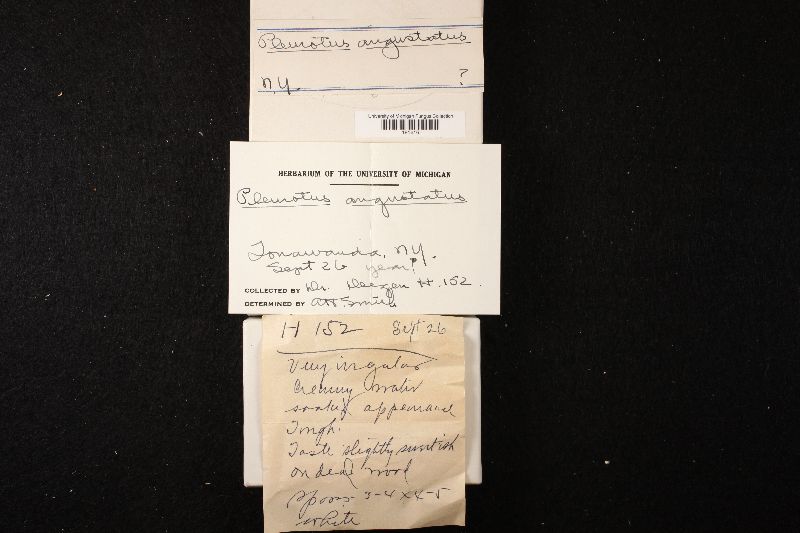 Pleurotus angustatus
N.Y. ?
University of Michigan Fungus Collection
HERBARIUM OF THE UNIVERSITY OF MICHIGAN
Pleurotus angustatus
Tonawanda, N.Y.
Sept 26 year?
COLLECTED BY Dr. H. 152.
DETERMINED BY A.H. Smith
H 152 Sept 26
Very irregular
Creamy water
soaked appearance
Tough.
Taste slightly sweetish
on dead wood
spores 3-4 x 4-5
white